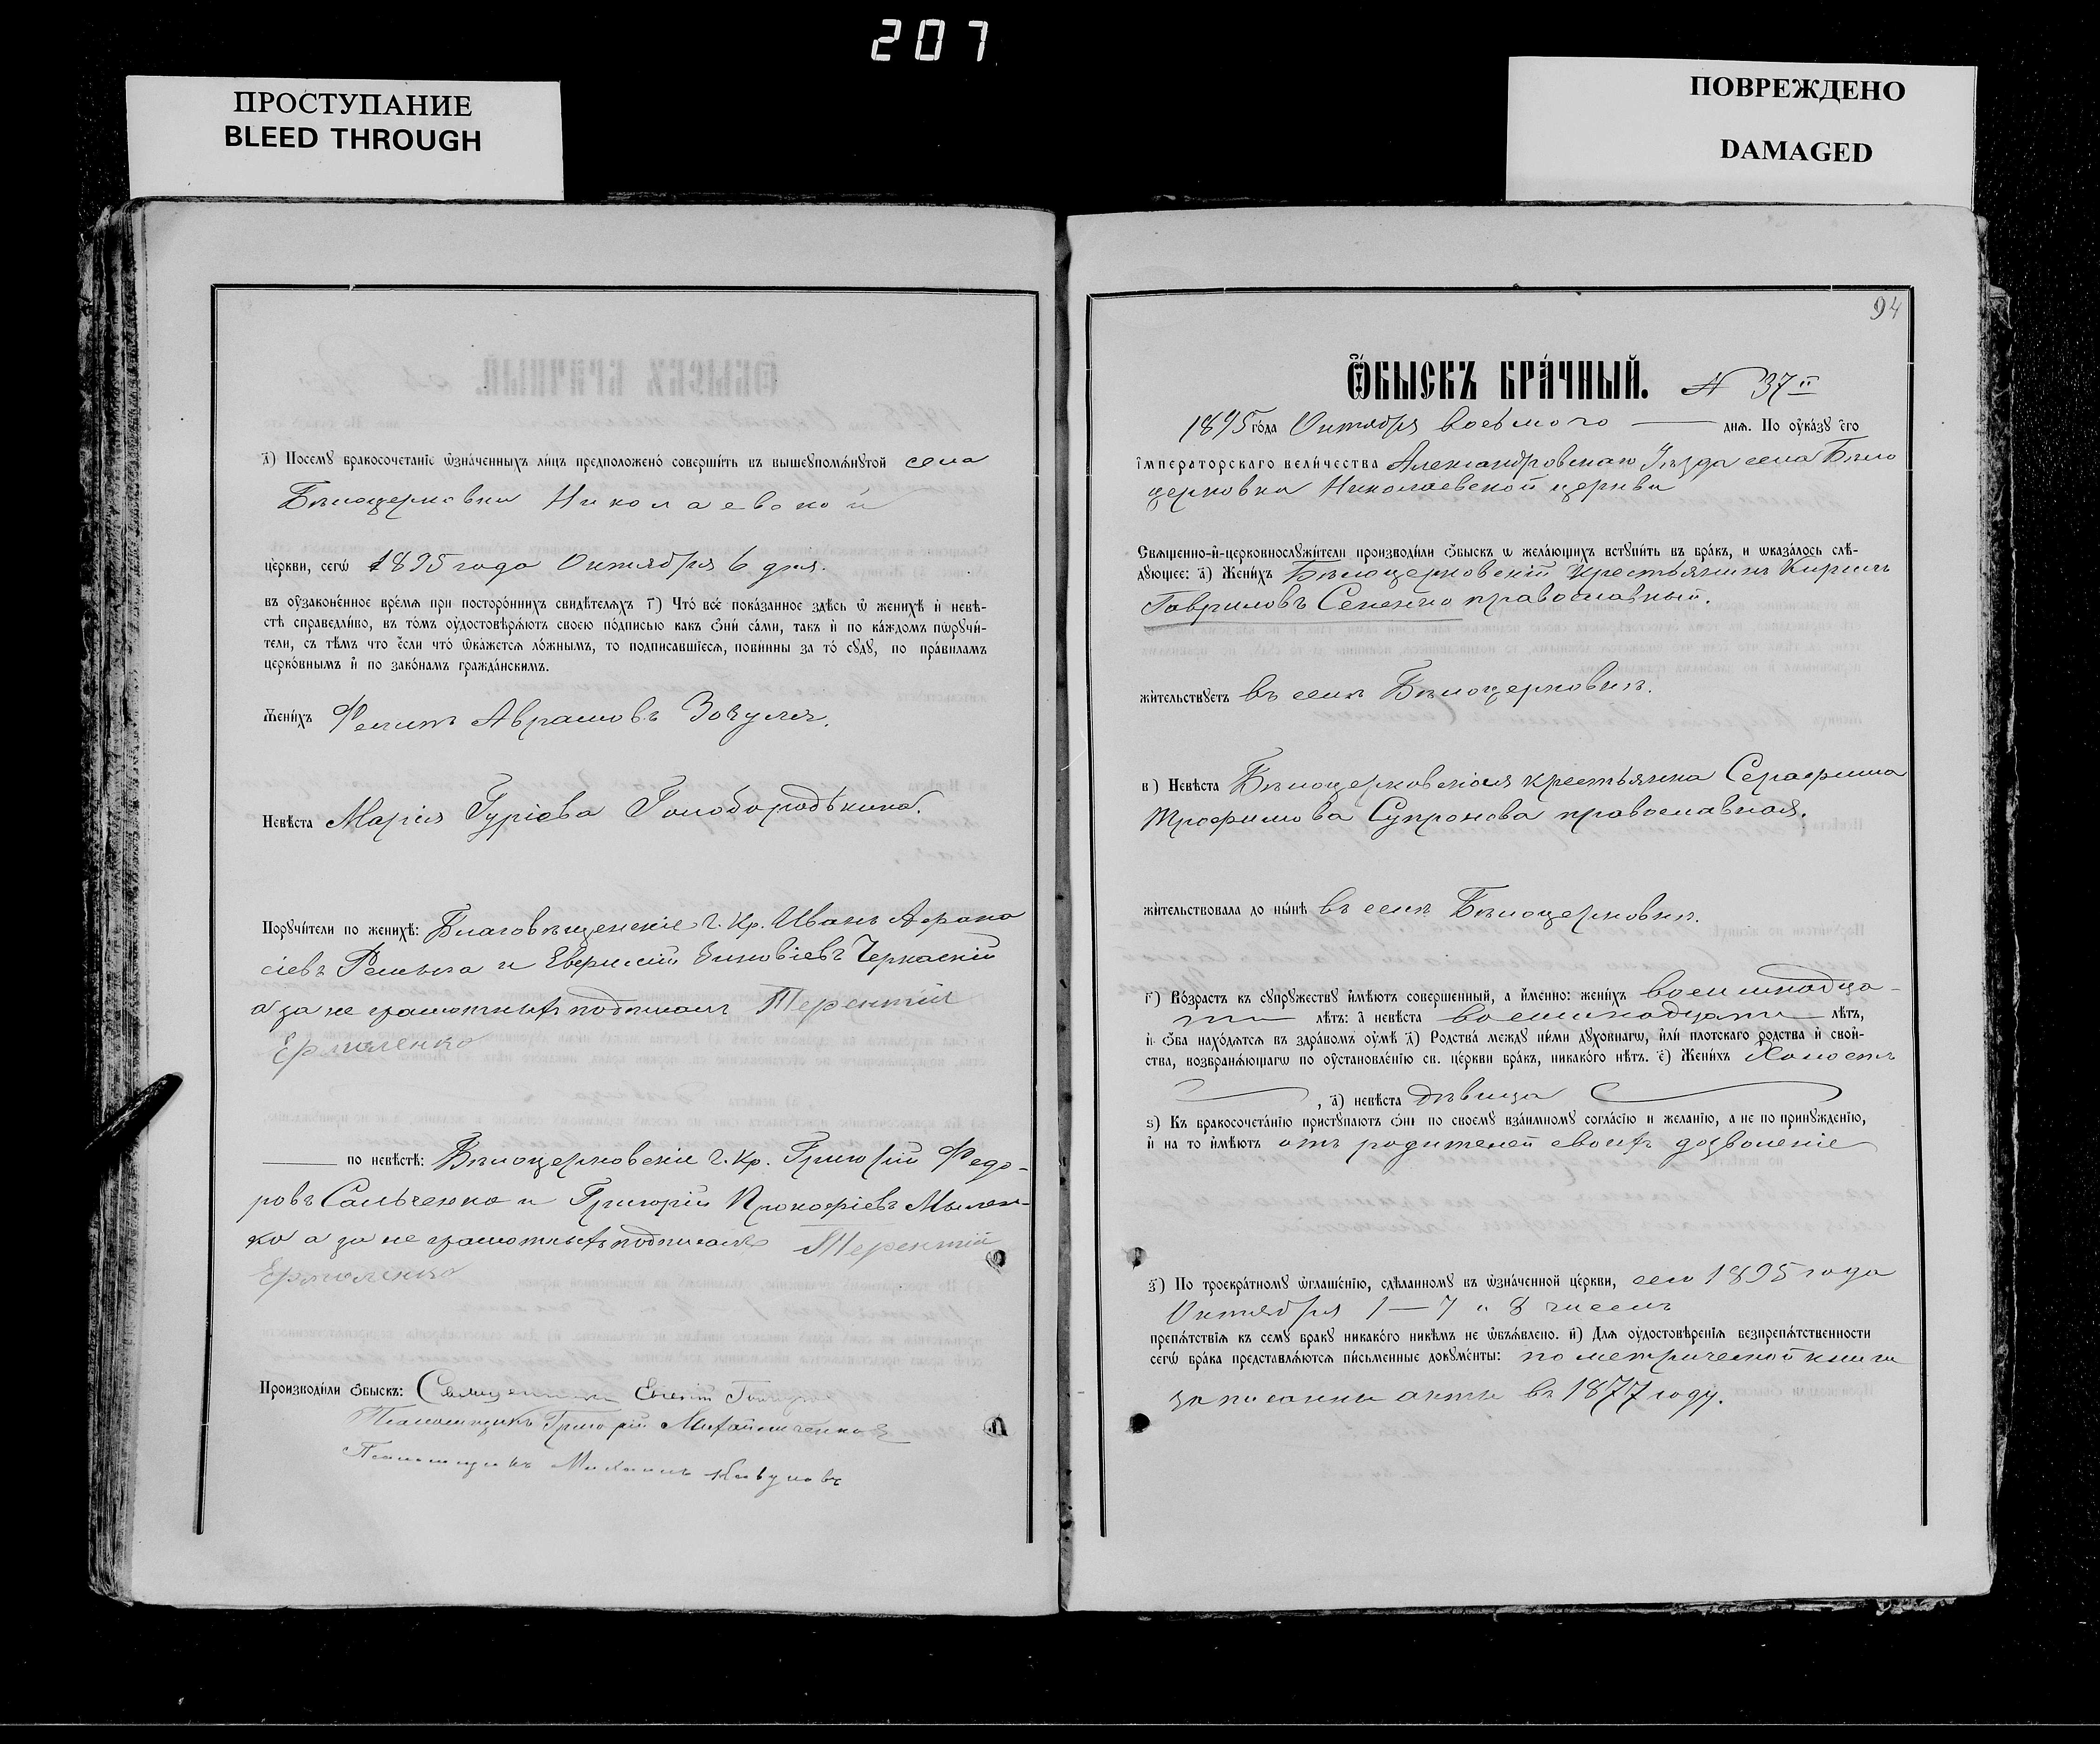 207
ПРОСТУПАНИЕ
BLEED THROUGH
ПОВРЕЖДЕНО
DAMAGED
д҃) Посемꙋ бракосочетанїе ѡзнáченныхъ ли́цъ предположенó соверши́ть въ вышеꙋпомѧ́нꙋтой села
Бѣлоцерковки Николаевской
це́ркви, сегѡ̀ 1895 года Октября 6 дня.
въ оу҆зако́ненное вре́мѧ при посторо́ннихъ свидѣ́телѧхъ г҃) Что̀ всѐ пока́занное здѣ́сь ѡ҆ женихѣ̀ и҆ невѣ́-
стѣ справедли́во, въ то́мъ оу҆достовѣрѧ́ютъ своею по́дписью какъ ѻ҆нѝ са́ми, та́къ и҆ по ка́ждомъ порꙋчи́-
тели, съ тѣ́мъ что є҆́сли что̀ ѡ҆ка́жетсѧ ло́жнымъ, то подписа́вшїесѧ, пови́нны за то̀ сꙋдꙋ̀, по пра́виламъ
церко́внымъ и҆ по зако́намъ гражда́нскимъ.
Жени́хъ Филипъ Аврамовъ Зозуля.
Невѣ́ста Марія Гуріева Голобородькина.
Порꙋчи́тели по женихѣ̀: Благовѣщенскіе г. кр. Иванъ Афана
сіевъ Ремыга и Евфимій Зиновіевъ Черкаскій
а за не грамотныхъ подписалъ Терентій
Ермоленко
по невѣ́стѣ: Бѣлоцерковскіе г. кр. Григорій Федо-
ровъ Сальченко и Григорій Прокофіевъ Мылен-
ко а за не грамотныхъ подписалъ Терентій
Ермоленко
Производи́ли ѻ҆́быскъ: Священникъ
Псаломщикъ Григорій Михайличенко
Псаломщикъ Михаилъ
94
Ѻ҆́БЫСКЪ БРА́ЧНЫЙ. № 37й
1895 го́да Октября восьмого дня. По оу҆ка́зꙋ є҆гѡ̀
і҆мпера́торскагѡ вели́чества Александровскаго Уѣзда села Бѣло
церковки Николаевской церкви
Свѧще́нно-и҆-церковнослꙋжи́тели производи́ли ѻ҆́быскъ ѡ жела́ющихъ встꙋпи́ть въ бра́къ, и ѡ҆каза́лось слѣ́-
дꙋющее: а҃) Жени́хъ Бѣлоцерковскій крестьянинъ Кирилъ
Гавриловъ Семенко православный.
жи́тельствꙋетъ въ селѣ Бѣлоцерковкѣ.
в҃) Невѣ́ста Бѣлоцерковская крестьянка Серафима
Трофимова Супронова православная.
жи́тельствовала до ны́нѣ въ селѣ Бѣлоцерковкѣ.
г҃) Во́зрастъ къ сꙋпрꙋ́жествꙋ и҆мѣ́ютъ соверше́нный, а и҆́менно: жени́хъ восемнадца-
ти лѣ́тъ: а҆ невѣ́ста восемнадцати лѣ́тъ,
и҆ ѻ҆́ба нахо́дѧтсѧ въ здра́вомъ оу҆мѣ̀ д҃) Родства̀ междꙋ ни́ми дꙋхо́внагѡ, и҆лѝ плотска́го родства̀ и҆ свой-
ства̀, возбранѧ́ющагѡ по оу҆становле́нїю св. це́ркви бра́къ, никако́го нѣ́тъ. є҃) Жени́хъ холостъ
, а҃) невѣ́ста дѣвица
ѕ҃) Къ бракосочета́нїю пристꙋпа́ютъ ѻ҆нѝ по своемꙋ̀ взаи́мномꙋ согла́сїю и жела́нїю, а не по принꙋжде́нїю,
и҆ на то и҆мѣ́ютъ отъ родителей своихъ дозволеніе
з҃) По троекра́тномꙋ ѡ҆глаше́нїю, сдѣ́ланномꙋ въ ѡ҆зна́ченной це́ркви, сего 1895 года
Октября 1 — 7 и 8 чиселъ
препѧ́тствїѧ къ семꙋ̀ бра́кꙋ никако́го никѣ́мъ не ѡ҆бъѧ́влено. и҃) Длѧ оу҆достовѣре́нїѧ безпрепѧ́тственности
сегѡ̀ бра́ка представлѧ́ютсѧ пи́сьменные докꙋме́нты: по метрической книги
записанны акты въ 1877 году.